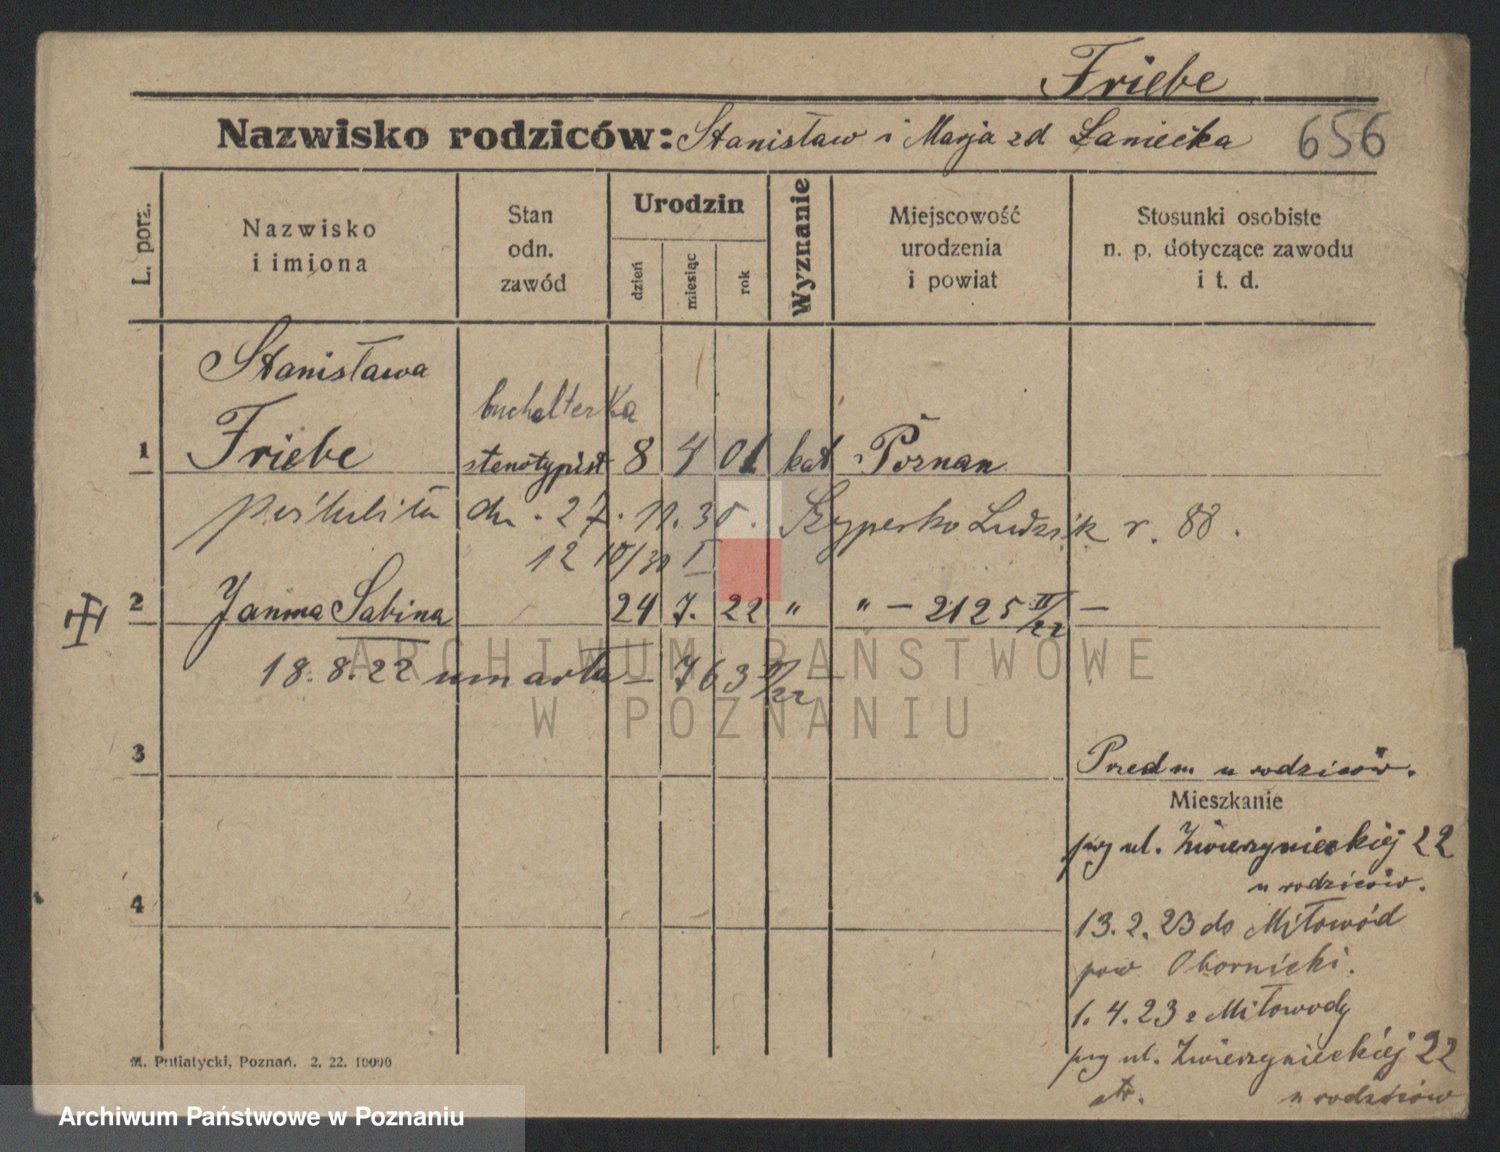 Friebe
Nazwisko rodziców: Stanisław i Marja zd Łaniecka 656
L. porz.
Nazwisko i imiona
Stan odn. zawód
Urodzin
dzień
miesiąc
rok
Wyznanie
Miejscowość urodzenia i powiat
Stosunki osobiste n. p. dotyczące zawodu i t. d.
Stanisława
buchalterka
1 Friebe stenotypist 8 4 01 kat Poznan
poślubiła dn. 27. 11. 30 r. Ludzik r. 88.
12 10/30 I
2 Janina Sabina 24 7. 22 " " — 2125 II/22 —
18. 8. 22 umarła — 763 II/22
ARCHIWUM PAŃSTWOWE
W POZNANIU
3
Przedm u rodziców.
Mieszkanie
przy ul. Zwierzynieckiej 22
u rodziców.
4
13. 2. 23 do Miłowód
pow Obornicki.
1. 4. 23 z Miłowody
przy ul. Zwierzynieckiej 22
u rodziców
M. Putiatycki, Poznań. 2. 22. 10000
Archiwum Państwowe w Poznaniu